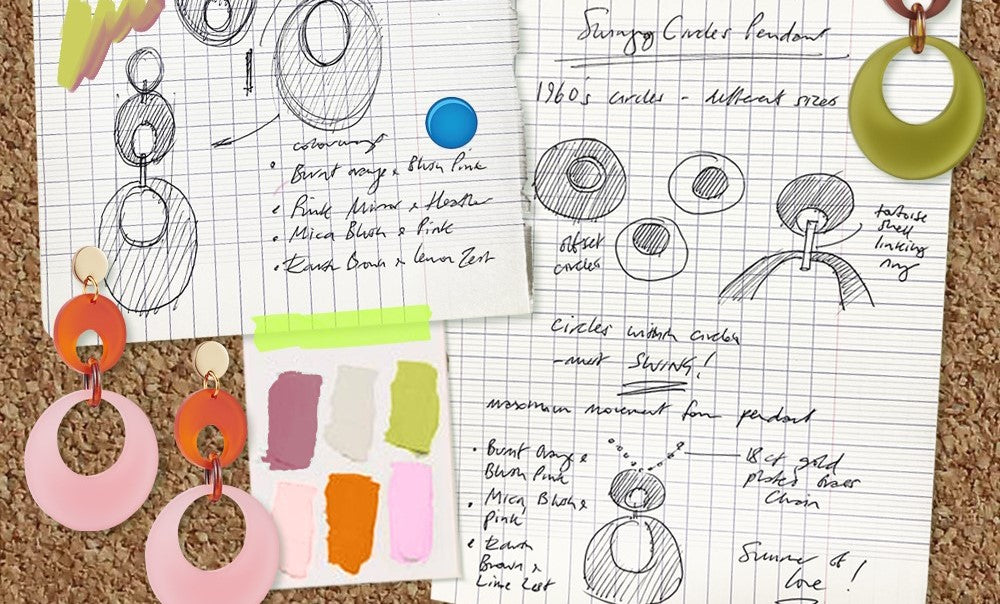 colourways
• Burnt orange & Blush Pink
• Pink Mirror & Heather
• Mica Blush & Pink
• Rawn Brown & Lemon Zest
Swinging Circles Pendant
1960's circles - different sizes
offset
circles
tortoise
shell
linking
ring
Circles within circles
- must SWING!
maximum movement for pendant
• Burnt Orange &
Blush Pink
• Mica Blush &
Pink
•
Brown &
Lime Zest
18ct gold
plated brass
Chain
Summer of
love!